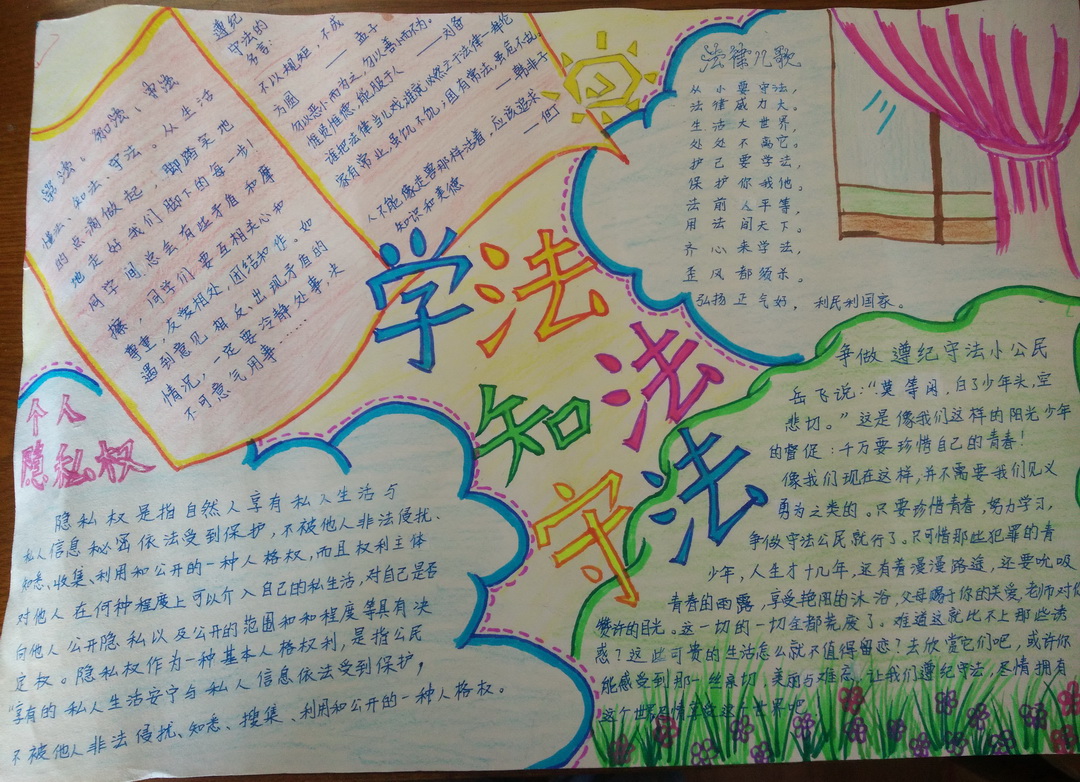 学法、知法、守法
懂法、知法、守法。从生活
的点滴做起，脚踏实地
地走好我们脚下的每一步！
同学间总会有些矛盾和摩
擦，同学们要互相关心和
尊重，友爱相处，团结和作。如
遇到意见相反、出现矛盾的
情况，一定要冷静处事，决
不可意气用事……
遵纪
守法的
名言：
不以规矩，不成
方圆 —孟子
勿以恶小而为之，勿以善小而不为。
惟贤惟德，能服于人 —刘备
谁把法律当儿戏，谁就必然亡于法律—拜伦
家有常业，虽饥不饥，国有常法，虽危不乱。
—韩非子
人不能像走兽那样活着，应该追求
知识和美德 —但丁
法律儿歌
从小要守法，
法律威力大。
生活大世界，
处处不离它。
护己要学法，
保护你我他。
法前人平等，
用法间天下。
齐心来学法，
歪风都须杀。
弘扬正气好，利民利国家。
学法
知法
守法
个人
隐私权
隐私权是指自然人享有私人生活与
私人信息秘密依法受到保护，不被他人非法侵扰、
知悉、收集、利用和公开的一种人格权，而且权利主体
对他人在何种程度上可以介入自己的私生活，对自己是否
向他人公开隐私以及公开的范围和和程度等具有决
定权。隐私权作为一种基本人格权利，是指公民
“享有的私人生活安宁与私人信息依法受到保护，
不被他人非法侵扰、知悉、搜集、利用和公开的一种人格权。
争做遵纪守法小公民
岳飞说：“莫等闲，白了少年头，空
悲切。”这是像我们这样的阳光少年
的督促：千万要珍惜自己的青春！
像我们现在这样，并不需要我们见义
勇为之类的。只要珍惜青春，努力学习，
争做守法公民就行了。只可惜那些犯罪的青
少年，人生才十几年，还有着漫漫路途，还要吮吸
青春的雨露，享受艳阳的沐浴，父母赐于你的关爱，老师对你
赞许的目光。这一切的一切全都荒废了。难道这就比不上那些诱
惑？这些可贵的生活怎么就不值得留恋？去欣赏它们吧，或许你
能感受到那一丝亲切、美丽与难忘。让我们遵纪守法，尽情拥有
这个世界，尽情享受这个世界吧